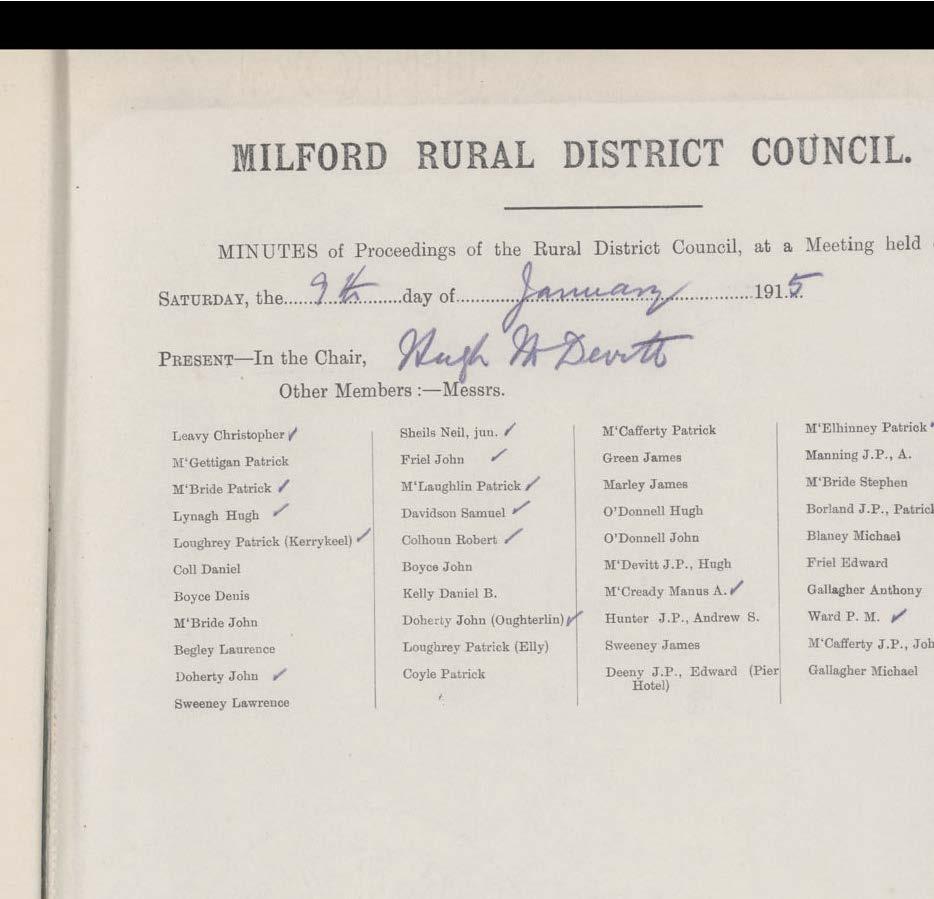 MILFORD RURAL DISTRICT COUNCIL.
MINUTES of Proceedings of the Rural District Council, at a Meeting held
SATURDAY, the......9th......day of............January............1915.
PRESENT—In the Chair, Hugh McDevitt
Other Members :—Messrs.
Leavy Christopher ✓
M‘Gettigan Patrick
M‘Bride Patrick ✓
Lynagh Hugh ✓
Loughrey Patrick (Kerrykeel) ✓
Coll Daniel
Boyce Denis
M‘Bride John
Begley Laurence
Doherty John ✓
Sweeney Lawrence
Sheils Neil, jun. ✓
Friel John ✓
M‘Laughlin Patrick ✓
Davidson Samuel ✓
Colhoun Robert ✓
Boyce John
Kelly Daniel B.
Doherty John (Oughterlin) ✓
Loughrey Patrick (Elly)
Coyle Patrick
M‘Cafferty Patrick
Green James
Marley James
O’Donnell Hugh
O’Donnell John
M‘Devitt J.P., Hugh
M‘Cready Manus A. ✓
Hunter J.P., Andrew S.
Sweeney James
Deeny J.P., Edward (Pier
Hotel)
M‘Elhinney Patrick
Manning J.P., A.
M‘Bride Stephen
Borland J.P., Patrick
Blaney Michael
Friel Edward
Gallagher Anthony
Ward P. M. ✓
M‘Cafferty J.P., Joh
Gallagher Michael